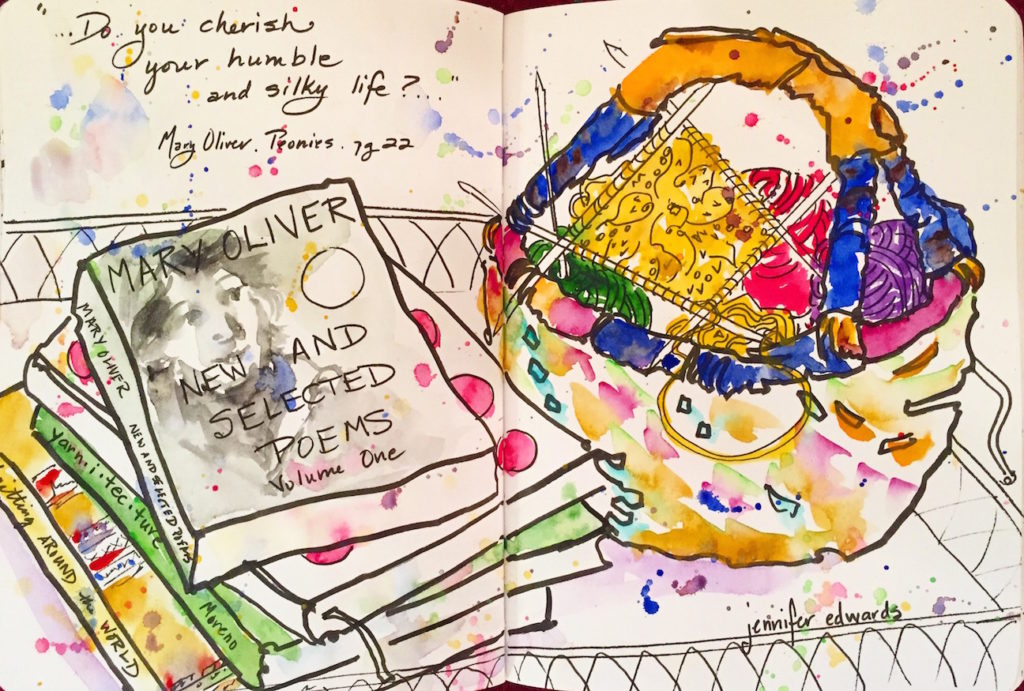 "...Do you cherish
your humble
and silky life?..."
Mary Oliver. Peonies. pg 22
MARY OLIVER
NEW AND
SELECTED
POEMS
Volume One
MARY OLIVER NEW AND SELECTED POEMS
yarn·i·tec·ture Moreno
knitting AROUND the WORLD
jennifer edwards